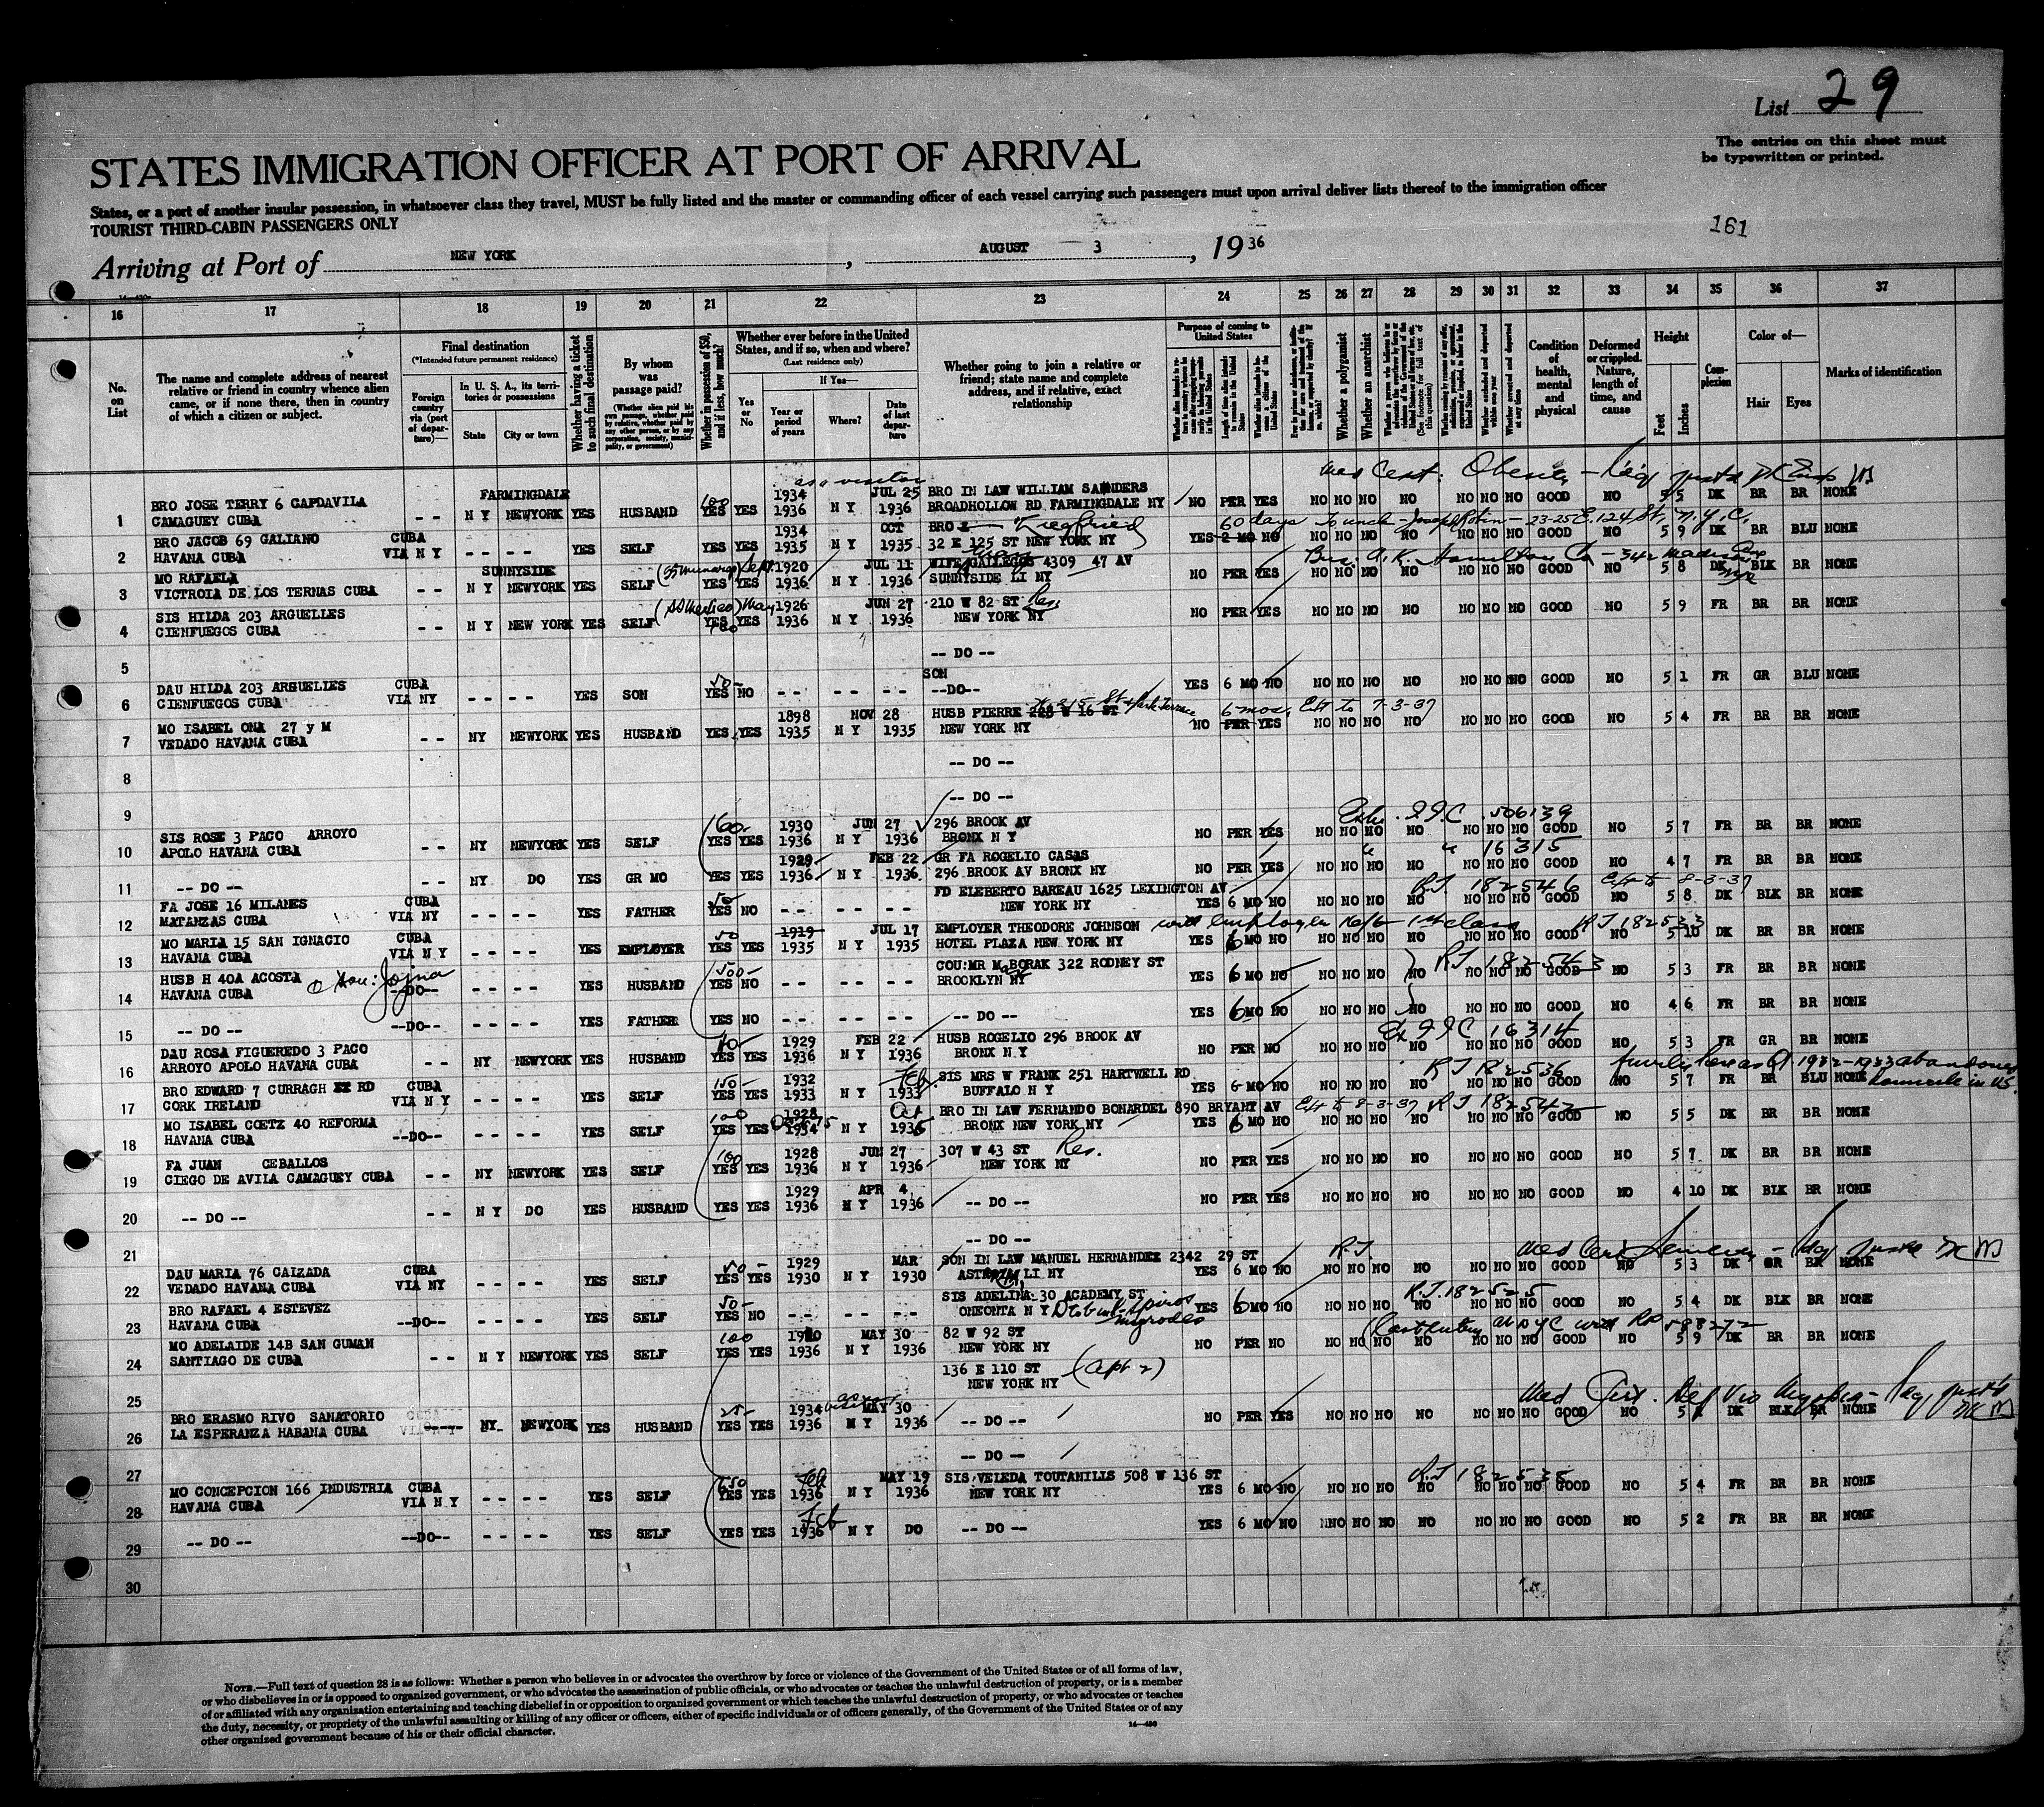 List 29
The entries on this sheet must
be typewritten or printed.
STATES IMMIGRATION OFFICER AT PORT OF ARRIVAL
States, or a port of another insular possession, in whatsoever class they travel, MUST be fully listed and the master or commanding officer of each vessel carrying such passengers must upon arrival deliver lists thereof to the immigration officer
TOURIST THIRD-CABIN PASSENGERS ONLY
161
Arriving at Port of NEW YORK, AUGUST 3, 1936
16 17 18 19 20 21 22 23 24 25 26 27 28 29 30 31 32 33 34 35 36 37
No. on List
The name and complete address of nearest relative or friend in country whence alien came, or if none there, then in country of which a citizen or subject.
Final destination
(*Intended future permanent residence)
Foreign country via (port of departure)—
In U. S. A., its territories or possessions
State City or town
Whether having a ticket to such final destination
By whom was passage paid?
(Whether alien paid his own passage, whether paid by relative, whether paid by any other person, or by any corporation, society, municipality, or government)
Whether in possession of $50, and if less, how much?
Whether ever before in the United States, and if so, when and where?
(Last residence only)
Yes or No
If Yes—
Year or period of years
Where?
Date of last departure
Whether going to join a relative or friend; state name and complete address, and if relative, exact relationship
Purpose of coming to United States
Length of time alien intends to remain in the United States
Whether a polygamist
Whether an anarchist
(See footnote for full text of this question)
Whether arrested and deported at any time
Condition of health, mental and physical
Deformed or crippled. Nature, length of time, and cause
Height
Feet Inches
Complexion
Color of—
Hair Eyes
Marks of identification
as a visitor
1 BRO JOSE TERRY 6 CAPDAVILA CAMAGUEY CUBA -- N Y FARMINGDALE NEWYORK YES HUSBAND 100 YES YES 1934 1936 N Y JUL 25 1936 BRO IN LAW WILLIAM SAUNDERS BROADHOLLOW RD FARMINGDALE NY NO PER YES NO NO NO NO NO NO NO GOOD NO 5 5 DK BR BR NONE
60 days To uncle Joseph Robin - 23-25 E. 124 St, N.Y.C.
2 BRO JACOB 69 GALIANO HAVANA CUBA CUBA VIA N Y -- -- YES SELF YES YES 1934 1935 N Y OCT 1935 BRO Ziegfried 32 E 125 ST NEW YORK NY YES 2 MO NO NO NO NO NO NO NO NO GOOD NO 5 9 DK BR BLU NONE
3 MO RAFAELA VICTROIA DE LOS TERNAS CUBA -- N Y SUNNYSIDE NEWYORK YES SELF YES YES Sept 1920 1936 N Y JUL 11 1936 WIFE GALLEGOS 4309 47 AV SUNNYSIDE LI NY NO PER YES NO NO NO NO NO NO NO GOOD NO 5 8 DK BLK BR NONE
4 SIS HILDA 203 ARGUELLES CIENFUEGOS CUBA -- N Y NEW YORK YES SELF YES YES 100 May 1926 1936 N Y JUN 27 1936 210 W 82 ST Res NEW YORK NY NO PER YES NO NO NO NO NO NO NO GOOD NO 5 9 FR BR BR NONE
5 -- DO --
6 DAU HILDA 203 ARGUELLES CIENFUEGOS CUBA CUBA VIA NY -- -- YES SON 50- YES NO -- -- -- SON --DO-- YES 6 MO NO NO NO NO NO NO NO NO GOOD NO 5 1 FR GR BLU NONE
6 mos. Ext to 7-3-37
7 MO ISABEL ONA 27 y M VEDADO HAVANA CUBA -- NY NEWYORK YES HUSBAND YES YES 1898 1935 N Y NOV 28 1935 HUSB PIERRE 228 W 16 ST NEW YORK NY NO PER YES NO NO NO NO NO NO NO GOOD NO 5 4 FR BR BR NONE
8 -- DO --
9 -- DO --
506139
10 SIS ROSE 3 PACO ARROYO APOLO HAVANA CUBA -- NY NEWYORK YES SELF 60- YES YES 1930 1936 N Y JUN 27 1936 296 BROOK AV BRONX N Y NO PER YES NO NO NO NO NO NO NO GOOD NO 5 7 FR BR BR NONE
" " 16315
11 -- DO -- -- NY DO YES GR MO YES YES 1929 1936 N Y FEB 22 1936 GR FA ROGELIO CASAS 296 BROOK AV BRONX NY NO PER YES NO NO NO NO NO NO NO GOOD NO 4 7 FR BR BR NONE
R.T. 182546 Ext to 8-3-37
12 FA JOSE 16 MILANES MATANZAS CUBA CUBA VIA NY -- -- YES FATHER 50 YES NO -- -- -- FD ELEBERTO BAREAU 1625 LEXINGTON AV NEW YORK NY YES 6 MO NO NO NO NO NO NO NO NO GOOD NO 5 8 DK BLK BR NONE
with employer 1st class R.T 182533
13 MO MARIA 15 SAN IGNACIO HAVANA CUBA CUBA VIA N Y -- -- YES EMPLOYER 50 YES YES 1919 1935 N Y JUL 17 1935 EMPLOYER THEODORE JOHNSON HOTEL PLAZA NEW YORK NY YES 6 MO NO NO NO NO NO NO NO NO GOOD NO 5 10 DK BR BR NONE
R.T 182543
14 HUSB H 40A ACOSTA HAVANA CUBA --DO-- -- -- YES HUSBAND 500- YES NO -- -- -- COU:MR M BORAK 322 RODNEY ST BROOKLYN NY YES 6 MO NO NO NO NO NO NO NO NO GOOD NO 5 3 FR BR BR NONE
15 -- DO -- --DO-- -- -- YES FATHER YES NO -- -- -- -- DO -- YES 6 MO NO NO NO NO NO NO NO NO GOOD NO 4 6 FR BR BR NONE
16314
16 DAU ROSA FIGUEREDO 3 PACO ARROYO APOLO HAVANA CUBA -- NY NEWYORK YES HUSBAND YES YES 1929 1936 N Y FEB 22 1936 HUSB ROGELIO 296 BROOK AV BRONX N Y NO PER NO NO NO NO NO NO NO NO GOOD NO 5 3 FR GR BR NONE
R T 182536
17 BRO EDWARD 7 CURRAGH RD CORK IRELAND CUBA VIA N Y -- -- YES SELF 150- YES YES 1932 1933 N Y Feb. 1933 SIS MRS W FRANK 251 HARTWELL RD BUFFALO N Y YES 6 MO NO NO NO NO NO NO NO NO GOOD NO 5 7 FR BR BLU NONE
Ext to 8-3-37 R T 182542
18 MO ISABEL COETZ 40 REFORMA HAVANA CUBA --DO-- -- -- YES SELF 100 YES YES 1928 1934 N Y Oct 1935 BRO IN LAW FERNANDO BONARDEL 890 BRYANT AV BRONX NEW YORK NY YES 6 MO NO NO NO NO NO NO NO NO GOOD NO 5 5 DK BR BR NONE
19 FA JUAN CEBALLOS CIEGO DE AVILA CAMAGUEY CUBA -- NY NEWYORK YES SELF 100 YES YES 1928 1936 N Y JUN 27 1936 307 W 43 ST Res. NEW YORK NY NO PER YES NO NO NO NO NO NO NO GOOD NO 5 7 DK BR BR NONE
20 -- DO -- -- N Y DO YES HUSBAND YES YES 1929 1936 N Y APR 4 1936 -- DO -- NO PER YES NO NO NO NO NO NO NO GOOD NO 4 10 DK BLK BR NONE
21 -- DO --
R.T.
22 DAU MARIA 76 CALZADA VEDADO HAVANA CUBA CUBA VIA NY -- -- YES SELF 50- YES YES 1929 1930 N Y MAR 1930 SON IN LAW MANUEL HERNANDEZ 2342 29 ST LI NY YES 6 MO NO NO NO NO NO NO NO NO GOOD NO 5 3 DK GR BR NONE
R.T. 182525
23 BRO RAFAEL 4 ESTEVEZ HAVANA CUBA --DO-- -- -- YES SELF 50- YES NO -- -- -- SIS ADELINA 30 ACADEMY ST ONEONTA N Y YES 6 MO NO NO NO NO NO NO NO NO GOOD NO 5 4 DK BLK BR NONE
588272
24 MO ADELAIDE 14B SAN GUMAN SANTIAGO DE CUBA -- N Y NEWYORK YES SELF 100 YES YES 1920 1936 N Y MAY 30 1936 82 W 92 ST NEW YORK NY NO PER NO NO NO NO NO NO NO NO GOOD NO 5 9 DK BR BR NONE
25 136 E 110 ST NEW YORK NY (Apt 2)
26 BRO ERASMO RIVO SANATORIO LA ESPERANZA HABANA CUBA NY NEWYORK YES HUSBAND 25- YES YES 1934 1936 N Y MAY 30 1936 -- DO -- NO PER YES NO NO NO NO NO NO NO GOOD NO DK BLK BR NONE
27 -- DO --
R.T 182538
28 MO CONCEPCION 166 INDUSTRIA HAVANA CUBA CUBA VIA N Y -- -- YES SELF YES YES Feb 1936 N Y MAY 19 1936 SIS VELEDA TOUTANILIS 508 W 136 ST NEW YORK NY YES 6 MO NO NO NO NO NO NO NO NO GOOD NO 5 4 FR BR BR NONE
29 -- DO -- --DO-- -- -- YES SELF YES YES Feb 1936 N Y DO -- DO -- YES 6 MO NO NNO NO NO NO NO NO NO GOOD NO 5 2 FR BR BR NONE
30
NOTE.—Full text of question 28 is as follows: Whether a person who believes in or advocates the overthrow by force or violence of the Government of the United States or of all forms of law,
or who disbelieves in or is opposed to organized government, or who advocates the assassination of public officials, or who advocates or teaches the unlawful destruction of property, or is a member
of or affiliated with any organization entertaining and teaching disbelief in or opposition to organized government or which teaches the unlawful destruction of property, or who advocates or teaches
the duty, necessity, or propriety of the unlawful assaulting or killing of any officer or officers, either of specific individuals or of officers generally, of the Government of the United States or of any
other organized government because of his or their official character.
14—480